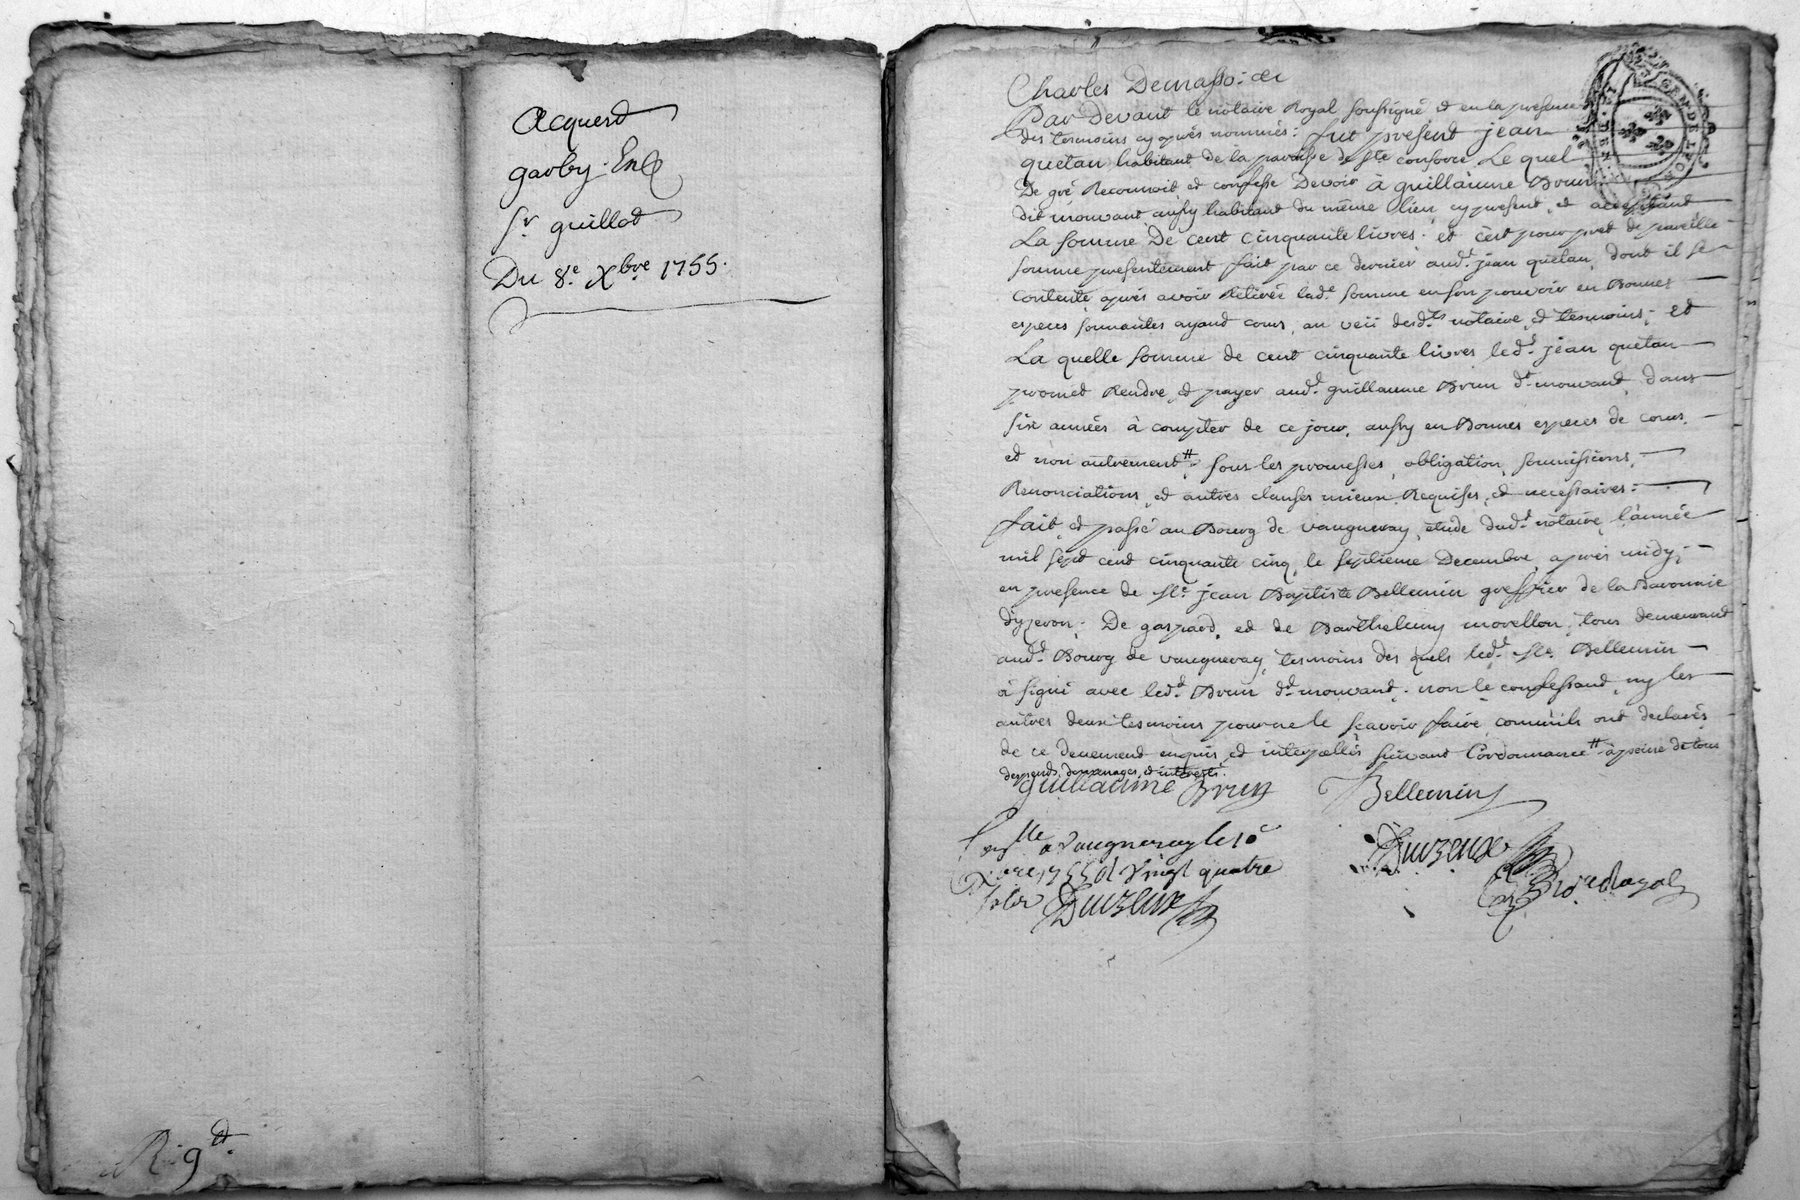 Acquerd
garby
Sr guillot
Du 8.e Xbre 1755.
Charles
Par Devant le notaire Royal soussigné et en la presence
des tesmoins cy après nommés: fut present jean
quetan habitant de la paroisse de Ste consorce Le quel
De gré Reconnoit et confesse Devoir à guillaume Brun
dit mouvant aussy habitant du même lieu cy present, et acceptant
La somme De cent cinquante livres. et c'est pour pret de pareille
somme presentement fait par ce dernier aud.t jean quetan, dont il se
contente après avoir Retirée lad.e somme en son pouvoir en Bonnes
especes sonnantes ayand cours, au veü desd.ts notaire, et tesmoins; et
La quelle somme de cent cinquante livres led.t jean quetan
promet Rendre, et payer aud.t guillaume Brun d.t mouvand, dans
six années à compter de ce jour, aussy en Bonnes especes de cours.
et non autrement # sous les promesses, obligation, soumissions,
Renonciations, et autres clauses mieux Requises, et necessaires:
fait, et passé au Bourg de vaugneray, étude dud.t notaire, l'année
mil sept cent cinquante cinq, le septieme Decembre, après midy;
en presence de Me. jean Baptiste Bellemin greffier de la Baronnie
d'yzeron; De gaspard, et de Barthelemy morellon, tous demeurant
aud.t Bourg de vaugneray, tesmoins des quels led.t Me. Bellemin
à signé avec led.t Brun d.t mouvand. non le confessand, ny les
autres deux tesmoins pour ne le sçavoir faire, comm'ils ont declarés
de ce deuement enquis, et interpellés suivant L'ordonnance # à peine de tous
despends, dommages, et interests.
guillaume Brun Bellemin
a Vaugneray le 10e
Xbre 1755 Vingt quatre